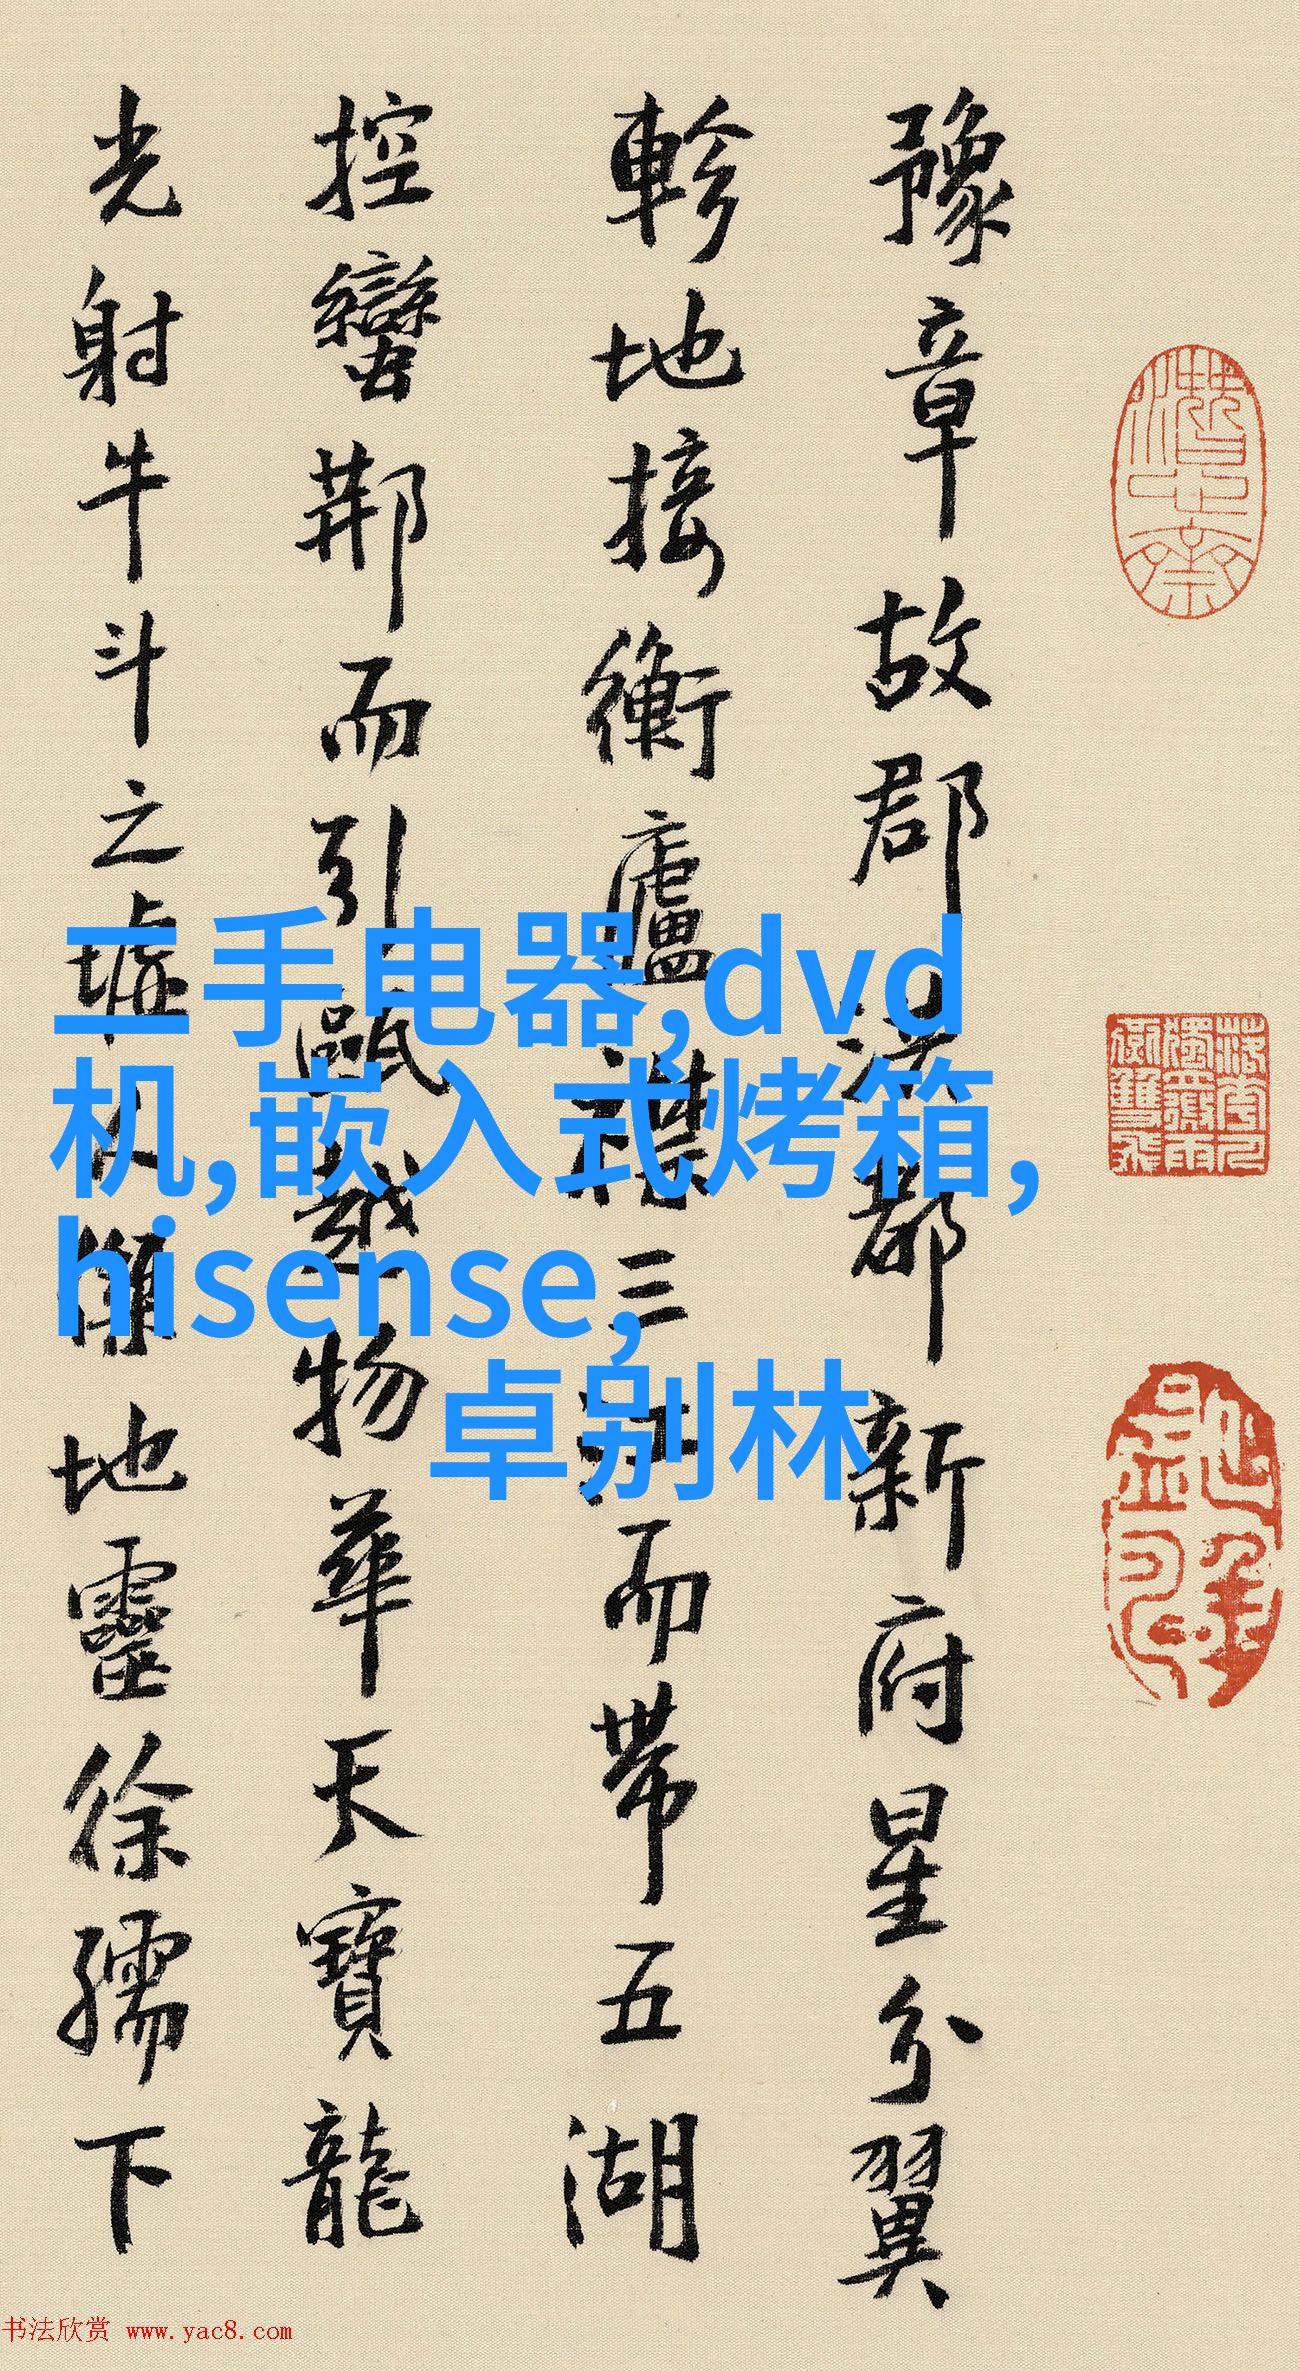 豫章故郡洪都新府星分翼
軫地接衡廬襟三江而帶五湖
控蠻荊而引甌越物華天寶龍
光射牛斗之墟人傑地靈徐孺下
二手电器,dvd
机,嵌入式烤箱,
hisense,
卓别林
书法欣赏 www.yac8.com